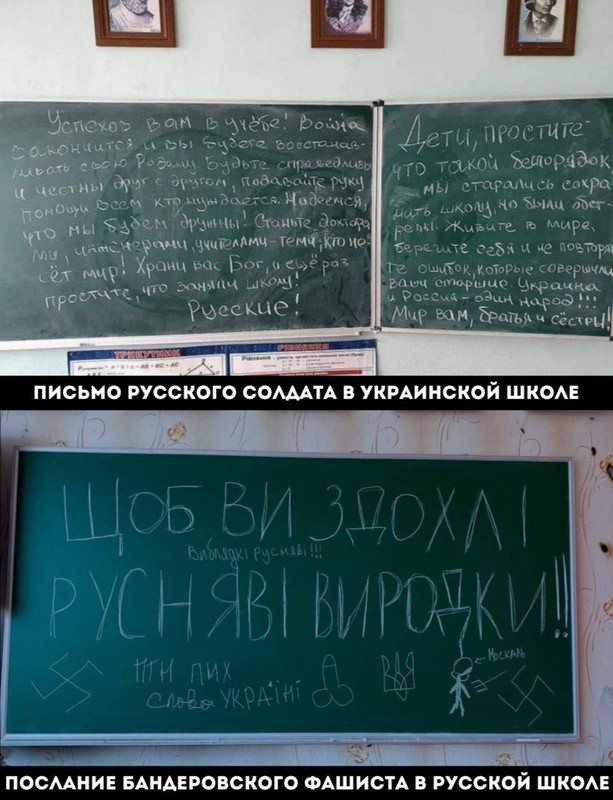 Успехов вам в учёбе! Война
закончится и вы будете восстанав-
ливать свою Родину. Будьте справедливы
и честны друг с другом, подавайте руку
помощи всем кто нуждается. Надеемся,
что мы будем дружны! Станьте доктора-
ми, инженерами, учителями - теми, кто не-
сёт мир! Храни вас Бог, и ещё раз
простите, что заняли школу!
Русские!
Дети, простите
что такой беспорядок,
мы старались сохра-
нить школу, но были обст-
релы. Живите в мире,
берегите себя и не повторяй-
те ошибок, которые совершили
ваши старшие. Украина
и Россия - один народ!!!
Мир вам, братья и сёстры!
ТРИКУТНИК
РІВНЯННЯ
ПИСЬМО РУССКОГО СОЛДАТА В УКРАИНСКОЙ ШКОЛЕ
ЩОБ ВИ ЗДОХЛІ
Виблядкі русняві!!!
РУСНЯВІ ВИРОДКИ!!
москаль
ПИХ
слова УКРАїНі
ПОСЛАНИЕ БАНДЕРОВСКОГО ФАШИСТА В РУССКОЙ ШКОЛЕ